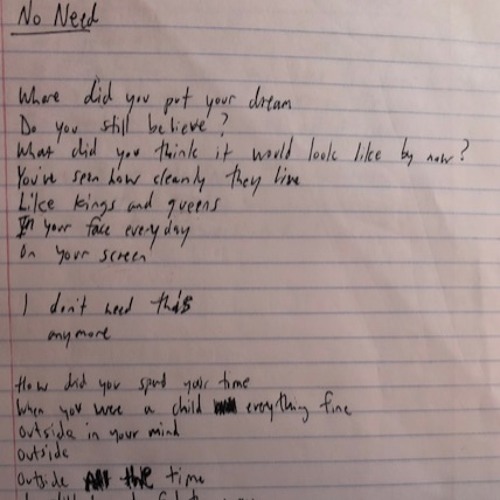 No Need
Where did you put your dream
Do you still believe?
What did you think it would look like by now?
You've seen how cleanly they live
Like kings and queens
In your face everyday
On your screen
I don't need this
anymore
How did you spend your time
When you were a child everything fine
Outside in your mind
Outside
Outside the time